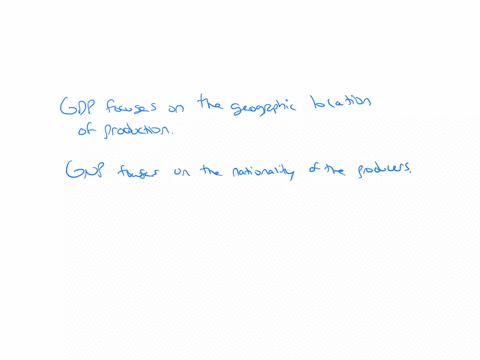 GDP focuses on the geographic location
of production.
GNP focuses on the nationality of the producers.